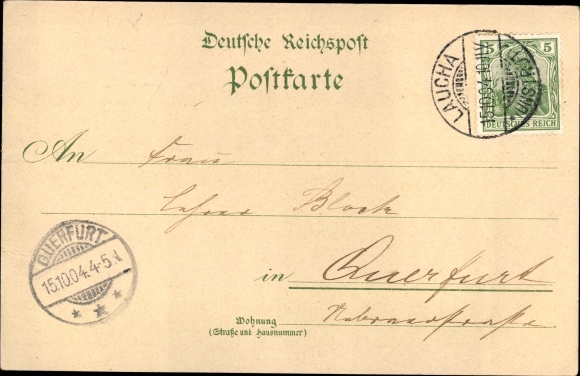 Deutsche Reichspost
Postkarte
LAUCHA
UNSTRUT
5
DEUTSCHES REICH
An Frau
Lehrer Block
in Querfurt
QUERFURT
15.10.04. 4-5 N
Wohnung
(Straße und Hausnummer)